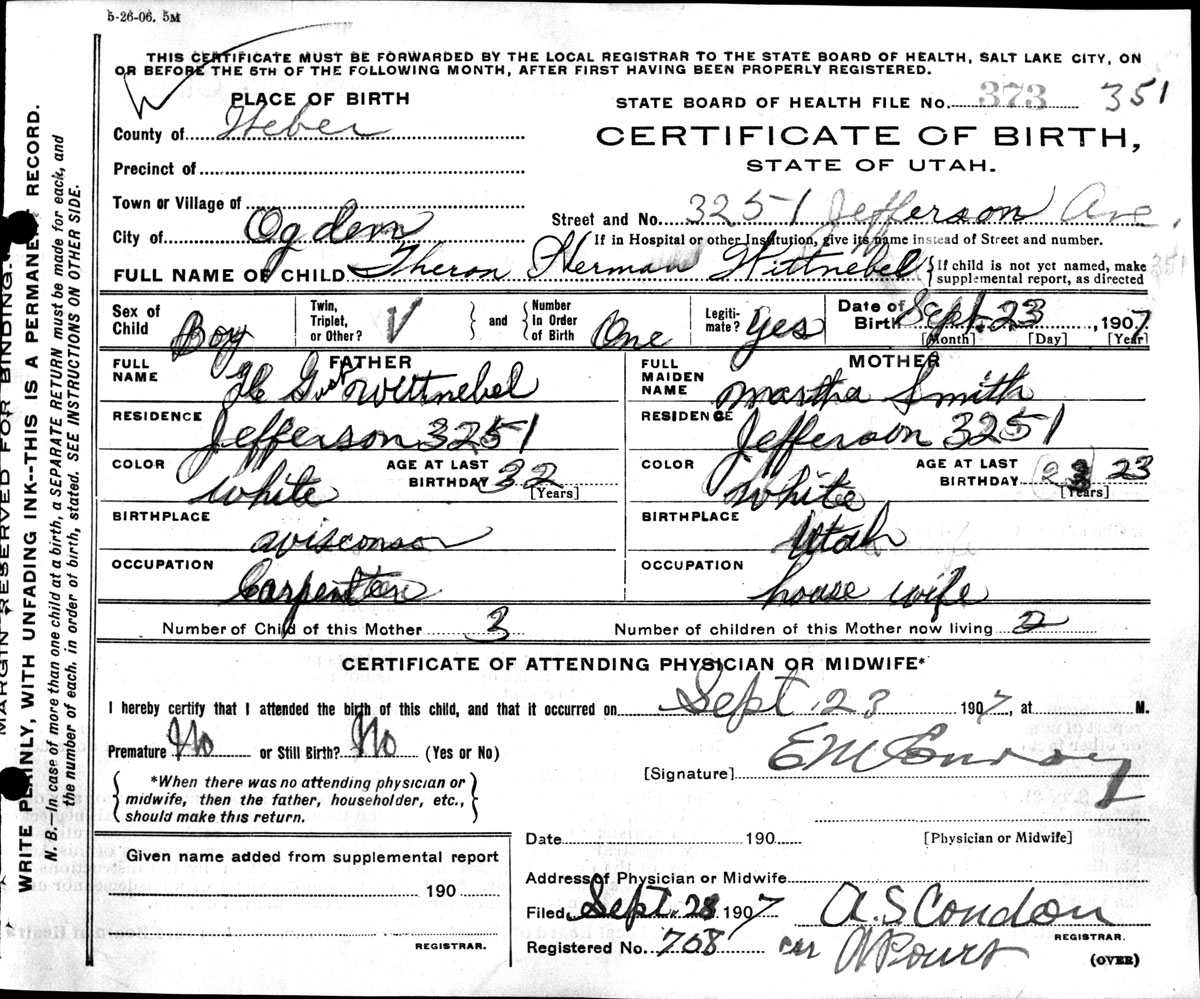 5-26-06. 5M
THIS CERTIFICATE MUST BE FORWARDED BY THE LOCAL REGISTRAR TO THE STATE BOARD OF HEALTH, SALT LAKE CITY, ON
OR BEFORE THE 5TH OF THE FOLLOWING MONTH, AFTER FIRST HAVING BEEN PROPERLY REGISTERED.
PLACE OF BIRTH
STATE BOARD OF HEALTH FILE No. 373 351
County of Weber
CERTIFICATE OF BIRTH,
STATE OF UTAH.
Precinct of
Town or Village of
Street and No. 3251 Jefferson Ave.
City of Ogden
If in Hospital or other Institution, give its name instead of Street and number.
FULL NAME OF CHILD Theron Herman Wittnebel
If child is not yet named, make
supplemental report, as directed
351
Sex of Child Boy
Twin, Triplet, or Other?
and
Number in Order of Birth One
Legiti-mate? Yes
Date of Birth Sept. 23, 1907
[Month] [Day] [Year]
FATHER
FULL NAME H Gust Wittnebel
MOTHER
FULL MAIDEN NAME Martha Smith
RESIDENCE Jefferson 3251
RESIDENCE Jefferson 3251
COLOR white
AGE AT LAST BIRTHDAY 32
[Years]
COLOR white
AGE AT LAST BIRTHDAY 23 23
[Years]
BIRTHPLACE wisconson
BIRTHPLACE Utah
OCCUPATION Carpenter
OCCUPATION house wife
Number of Child of this Mother 3
Number of children of this Mother now living 2
CERTIFICATE OF ATTENDING PHYSICIAN OR MIDWIFE*
I hereby certify that I attended the birth of this child, and that it occurred on Sept 23 1907, at M.
Premature No or Still Birth? No (Yes or No)
[Signature] E M Conroy
*When there was no attending physician or
midwife, then the father, householder, etc.,
should make this return.
Date 190
[Physician or Midwife]
Given name added from supplemental report
190
REGISTRAR.
Address of Physician or Midwife
Filed Sept 28 1907
A. S Condon
REGISTRAR.
Registered No. 708
(OVER)
MARGIN RESERVED FOR BINDING.
WRITE PLAINLY, WITH UNFADING INK--THIS IS A PERMANENT RECORD.
N. B.—In case of more than one child at a birth, a SEPARATE RETURN must be made for each, and
the number of each, in order of birth, stated. SEE INSTRUCTIONS ON OTHER SIDE.